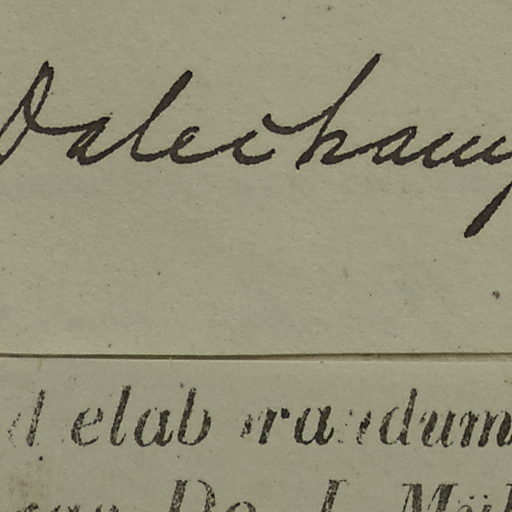 Dalechamp
d elaborandum
Dr. J. Mül